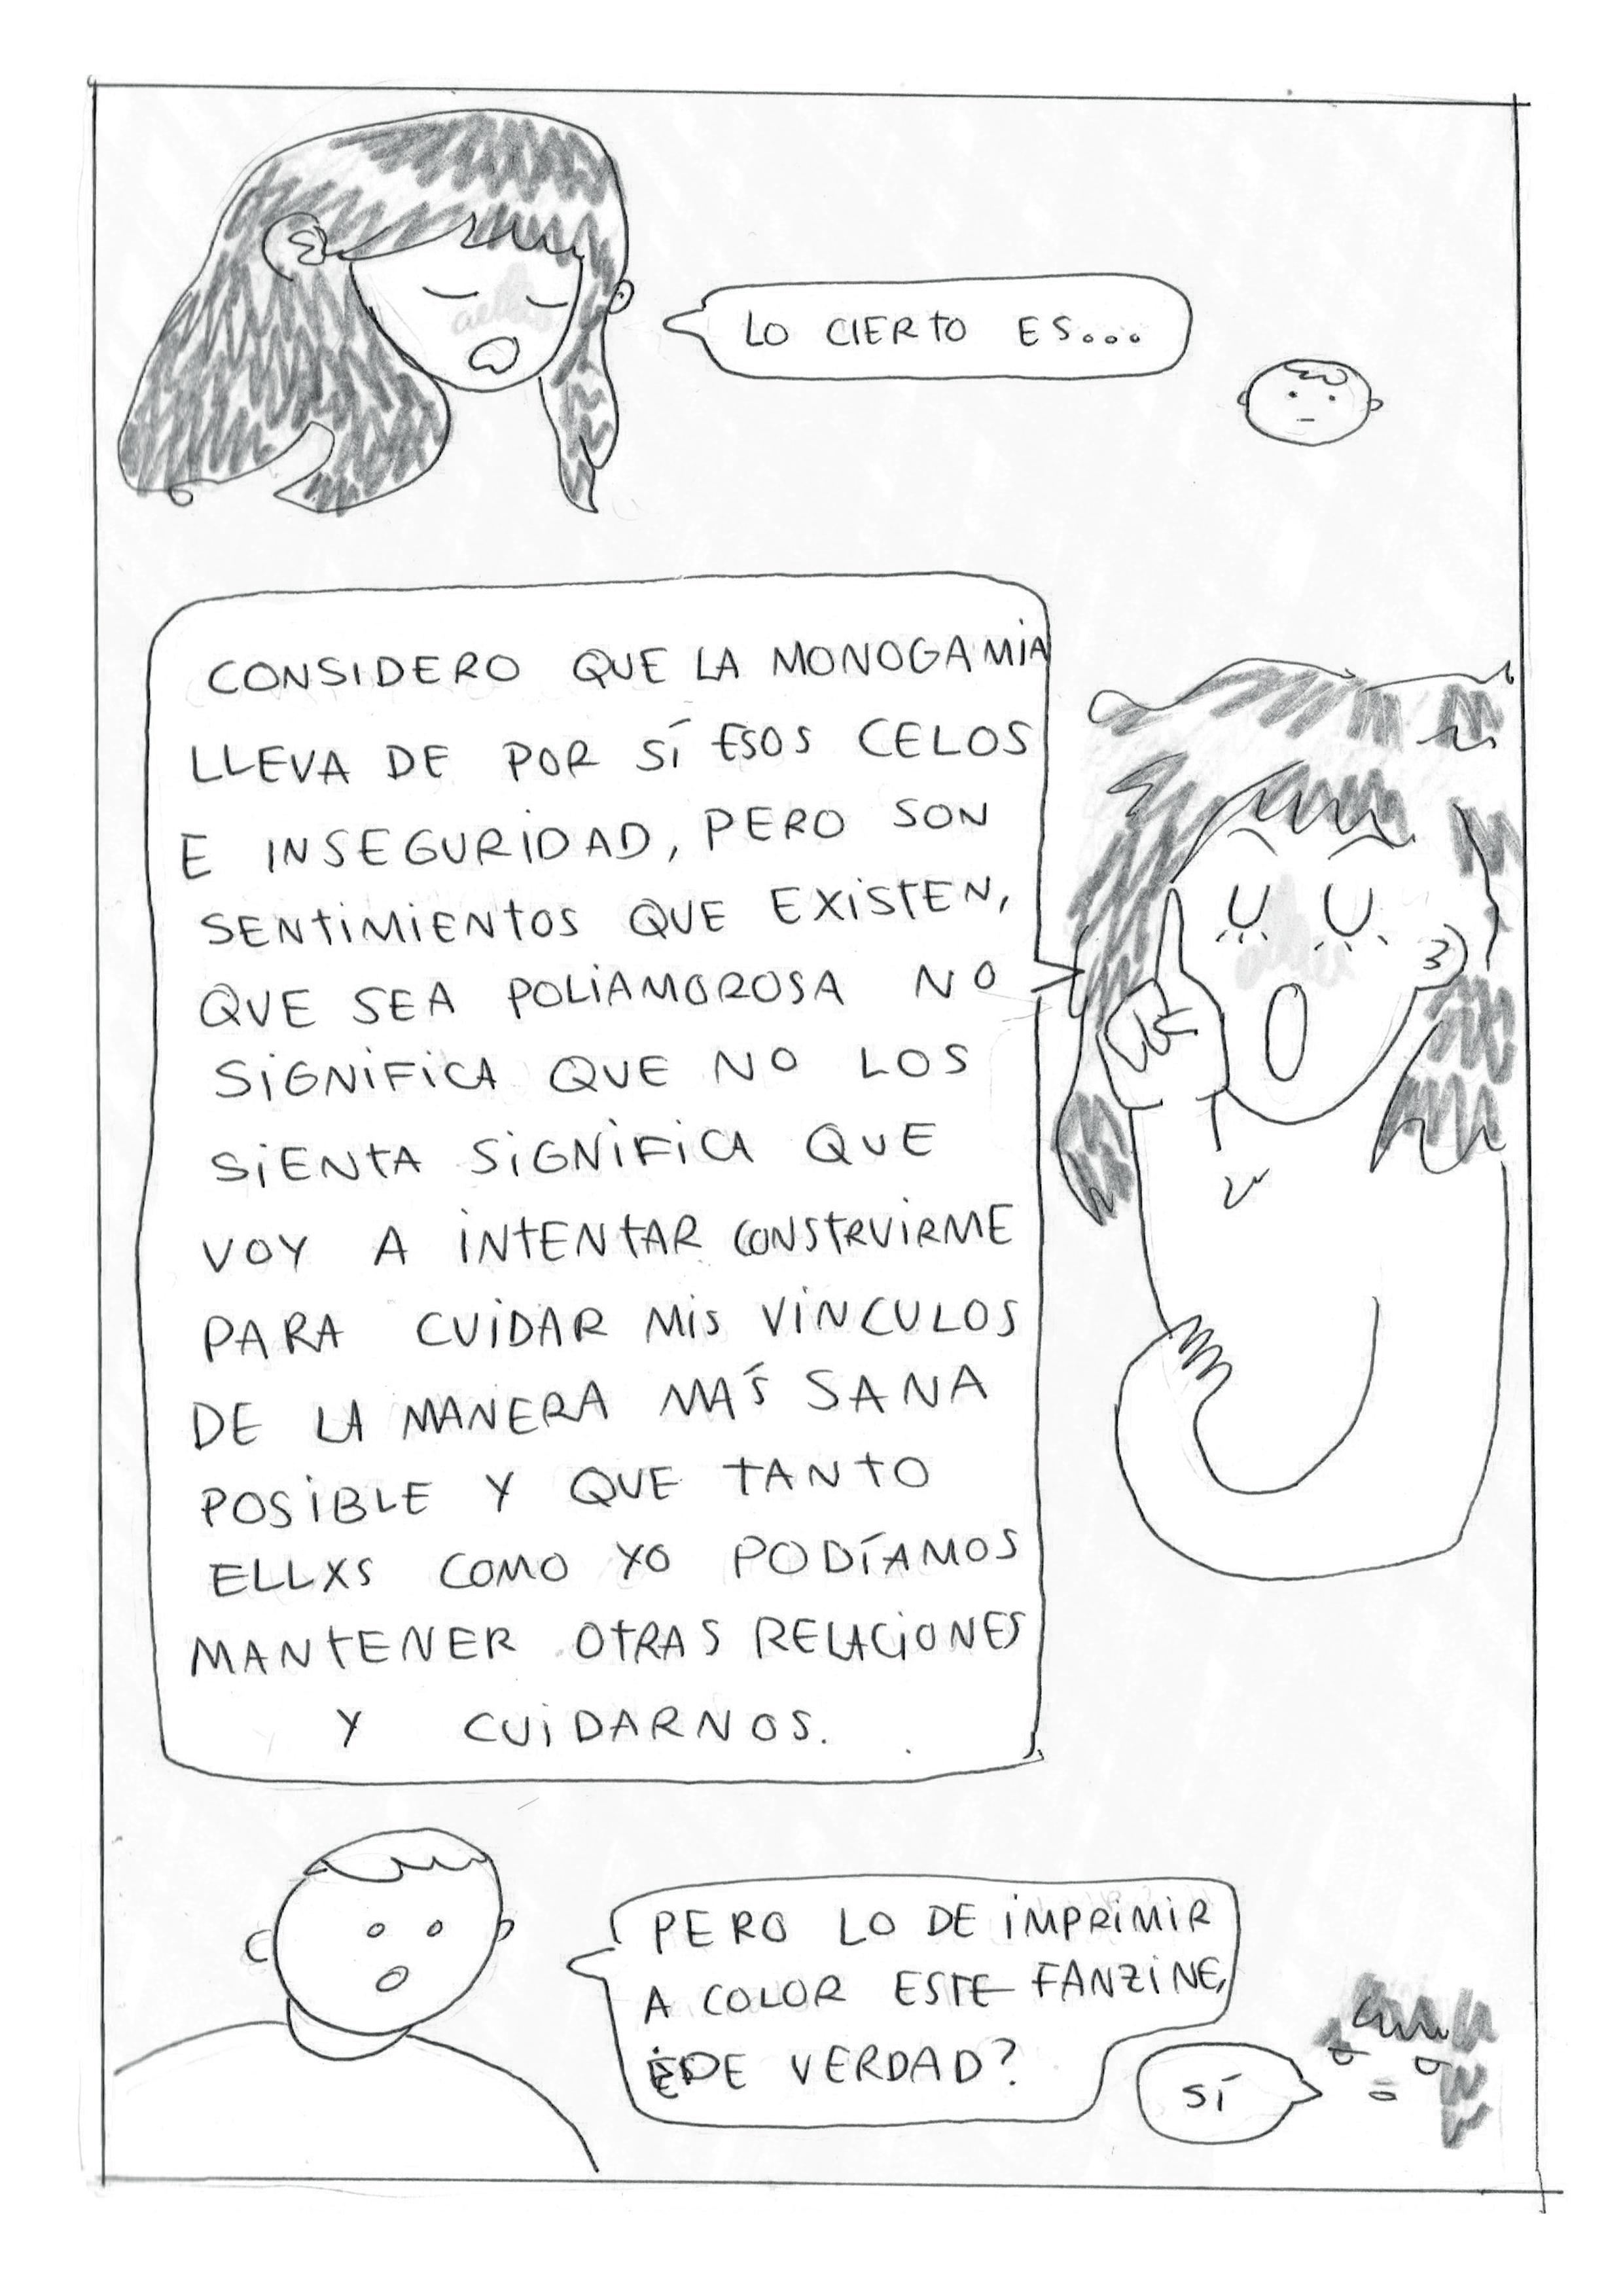 LO CIERTO ES...
CONSIDERO QUE LA MONOGAMIA
LLEVA DE POR SÍ ESOS CELOS
E INSEGURIDAD, PERO SON
SENTIMIENTOS QUE EXISTEN,
QUE SEA POLIAMOROSA NO
SIGNIFICA QUE NO LOS
SIENTA SIGNIFICA QUE
VOY A INTENTAR CONSTRUIRME
PARA CUIDAR MIS VINCULOS
DE LA MANERA MAS SANA
POSIBLE Y QUE TANTO
ELLXS COMO YO PODÍAMOS
MANTENER OTRAS RELACIONES
Y CUIDARNOS.
PERO LO DE IMPRIMIR
A COLOR ESTE FANZINE,
¿DE VERDAD?
SÍ